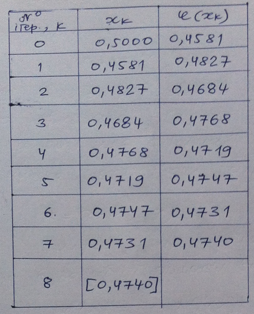 №
ітер., к xк φ(xк)
0 0,5000 0,4581
1 0,4581 0,4827
2 0,4827 0,4684
3 0,4684 0,4768
4 0,4768 0,4719
5 0,4719 0,4747
6. 0,4747 0,4731
7 0,4731 0,4740
8 [0,4740]